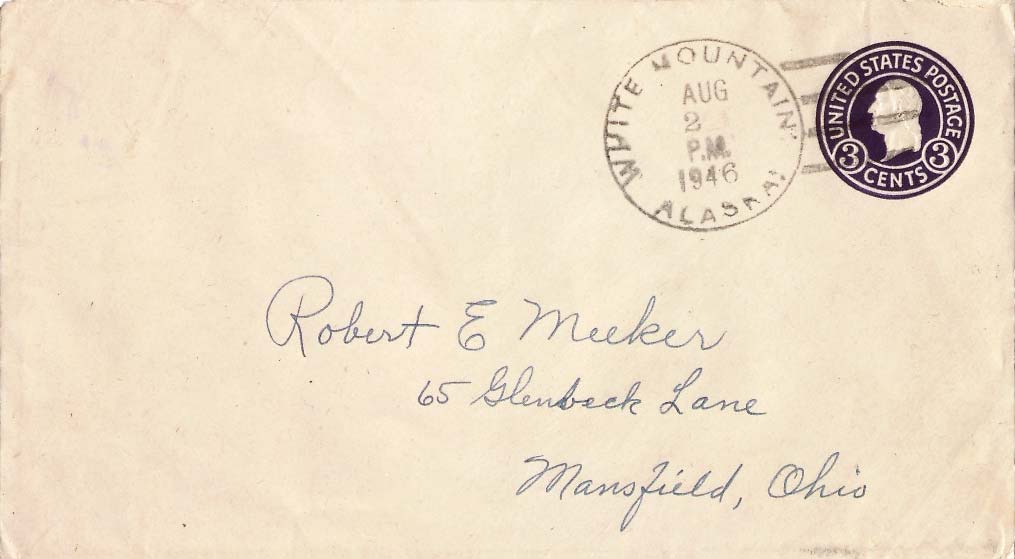 WHITE MOUNTAIN
AUG
2
P.M.
1946
ALASKA
UNITED STATES POSTAGE
3 CENTS 3
Robert E Meeker
65 Glenbeck Lane
Mansfield, Ohio